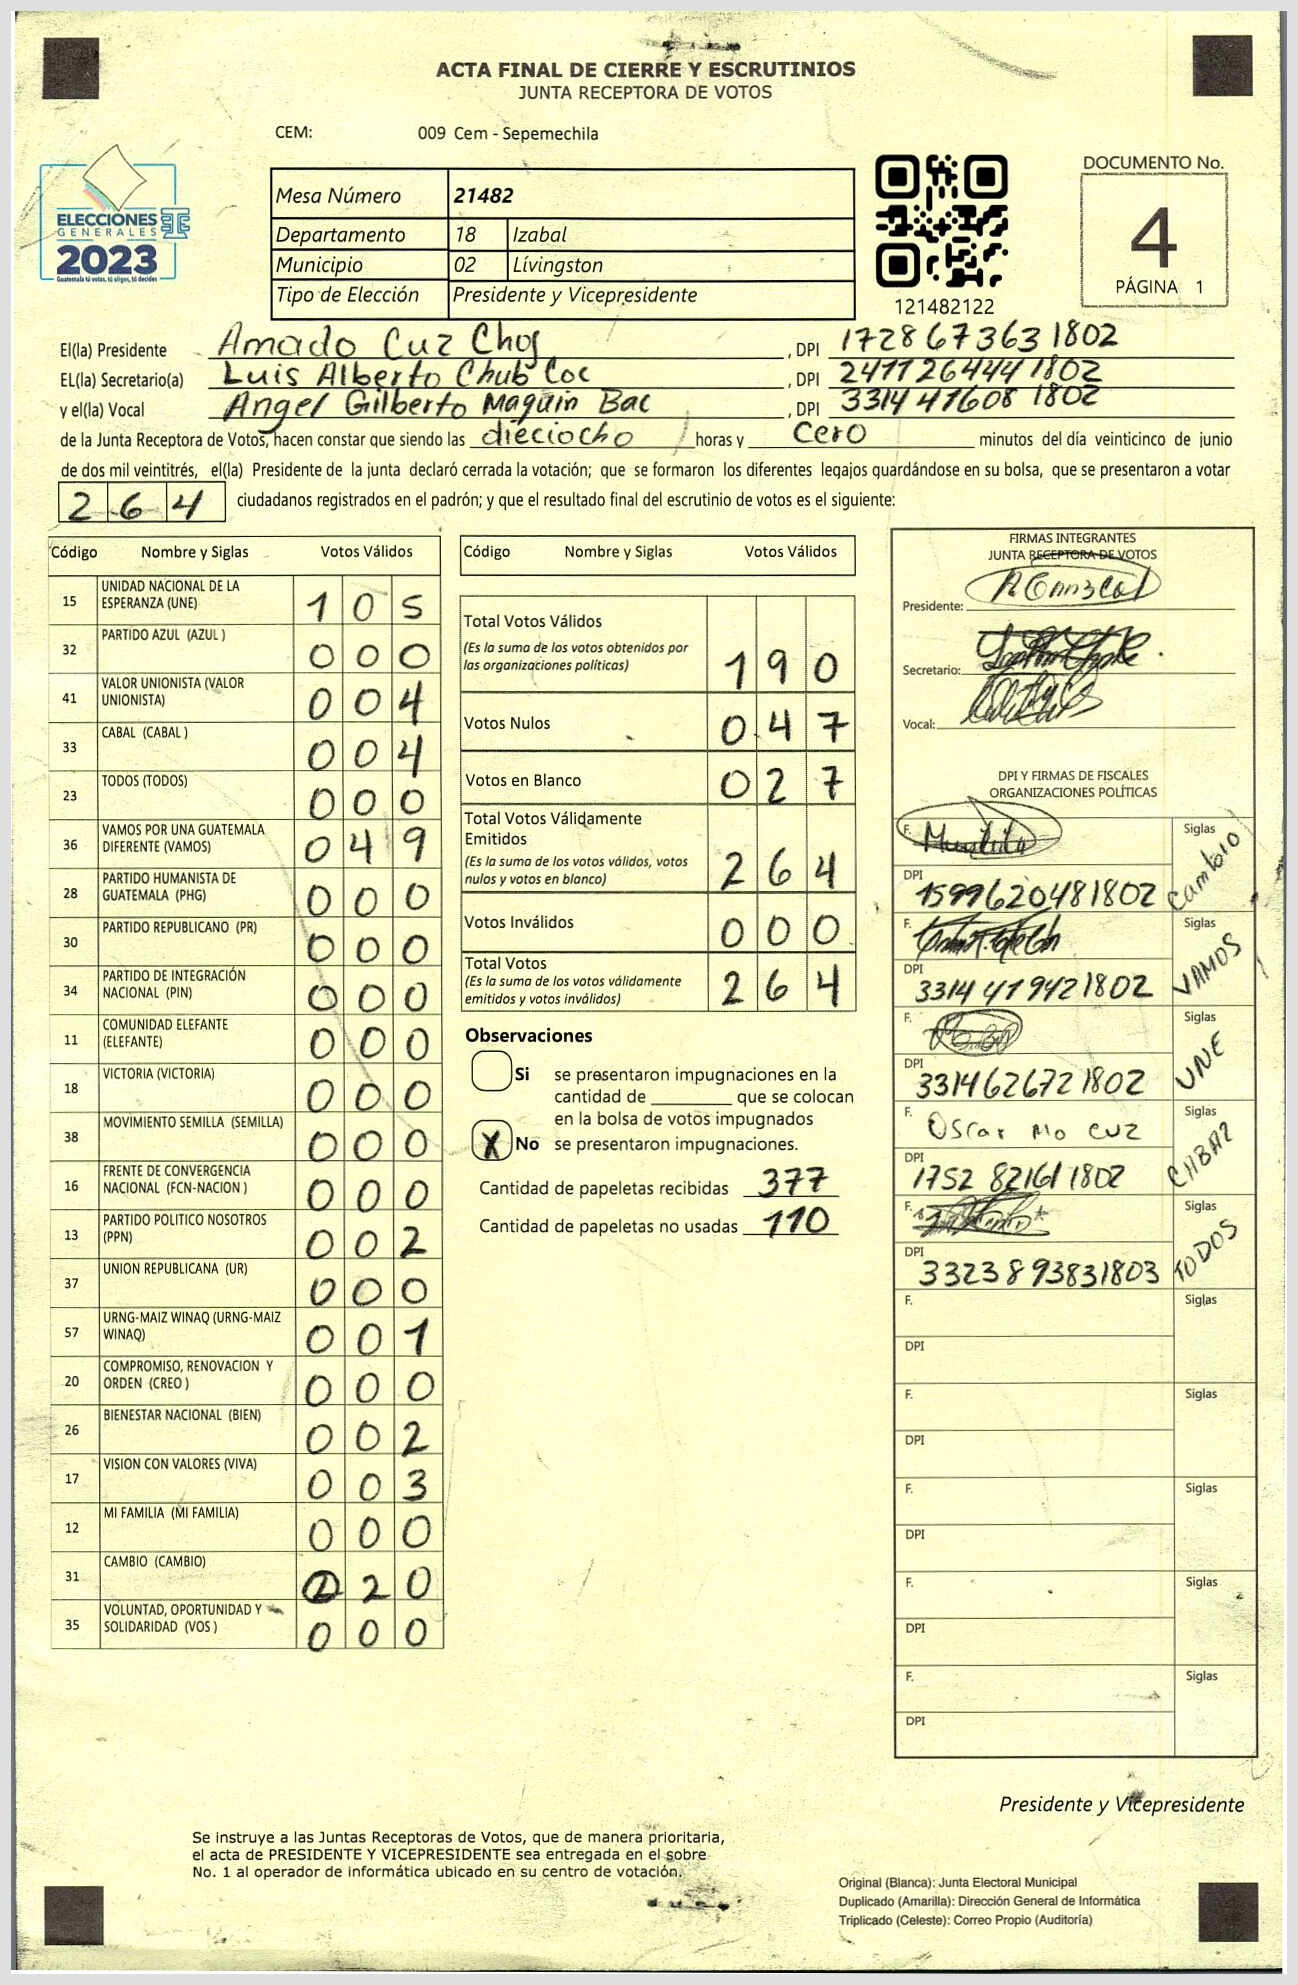 ACTA FINAL DE CIERRE Y ESCRUTINIOS
JUNTA RECEPTORA DE VOTOS
CEM: 009 Cem - Sepemechila
ELECCIONES
GENERALES
2023
Guatemala tú votas, tú eliges, tú decides
Mesa Número 21482
Departamento 18 Izabal
Municipio 02 Lívingston
Tipo de Elección Presidente y Vicepresidente
121482122
DOCUMENTO No.
4
PÁGINA 1
El(la) Presidente Amado Cuz Choj , DPI 1728673631802
EL(la) Secretario(a) Luis Alberto Chub Coc , DPI 2411264441802
y el(la) Vocal Angel Gilberto Maquin Bac , DPI 3314416081802
de la Junta Receptora de Votos, hacen constar que siendo las dieciocho horas y cero minutos del día veinticinco de junio
de dos mil veintitrés, el(la) Presidente de la junta declaró cerrada la votación; que se formaron los diferentes legajos guardándose en su bolsa, que se presentaron a votar
264 ciudadanos registrados en el padrón; y que el resultado final del escrutinio de votos es el siguiente:
Código Nombre y Siglas Votos Válidos
15 UNIDAD NACIONAL DE LA ESPERANZA (UNE) 105
32 PARTIDO AZUL (AZUL ) 000
41 VALOR UNIONISTA (VALOR UNIONISTA) 004
33 CABAL (CABAL ) 004
23 TODOS (TODOS) 000
36 VAMOS POR UNA GUATEMALA DIFERENTE (VAMOS) 049
28 PARTIDO HUMANISTA DE GUATEMALA (PHG) 000
30 PARTIDO REPUBLICANO (PR) 000
34 PARTIDO DE INTEGRACIÓN NACIONAL (PIN) 000
11 COMUNIDAD ELEFANTE (ELEFANTE) 000
18 VICTORIA (VICTORIA) 000
38 MOVIMIENTO SEMILLA (SEMILLA) 000
16 FRENTE DE CONVERGENCIA NACIONAL (FCN-NACION ) 000
13 PARTIDO POLITICO NOSOTROS (PPN) 002
37 UNION REPUBLICANA (UR) 000
57 URNG-MAIZ WINAQ (URNG-MAIZ WINAQ) 001
20 COMPROMISO, RENOVACION Y ORDEN (CREO ) 000
26 BIENESTAR NACIONAL (BIEN) 002
17 VISION CON VALORES (VIVA) 003
12 MI FAMILIA (MI FAMILIA) 000
31 CAMBIO (CAMBIO) 20
35 VOLUNTAD, OPORTUNIDAD Y SOLIDARIDAD (VOS ) 000
Código Nombre y Siglas Votos Válidos
Total Votos Válidos
(Es la suma de los votos obtenidos por
las organizaciones políticas) 190
Votos Nulos 047
Votos en Blanco 027
Total Votos Válidamente
Emitidos
(Es la suma de los votos válidos, votos
nulos y votos en blanco) 264
Votos Inválidos 000
Total Votos
(Es la suma de los votos válidamente
emitidos y votos inválidos) 264
Observaciones
Si se presentaron impugnaciones en la
cantidad de que se colocan
en la bolsa de votos impugnados
X No se presentaron impugnaciones.
Cantidad de papeletas recibidas 377
Cantidad de papeletas no usadas 110
FIRMAS INTEGRANTES
JUNTA RECEPTORA DE VOTOS
Presidente:
Secretario:
Vocal:
DPI Y FIRMAS DE FISCALES
ORGANIZACIONES POLÍTICAS
F. Siglas
DPI 1599620481802 Cambio
F. Siglas
DPI 3314419421802 VAMOS
F. Siglas
DPI 3314626721802 UNE
F. Oscar Mo Cuz Siglas
DPI 1752821611802
F. Siglas
DPI 3323893831803 TODOS
F. Siglas
DPI
F. Siglas
DPI
F. Siglas
DPI
F. Siglas
DPI
F. Siglas
DPI
Presidente y Vicepresidente
Se instruye a las Juntas Receptoras de Votos, que de manera prioritaria,
el acta de PRESIDENTE Y VICEPRESIDENTE sea entregada en el sobre
No. 1 al operador de informática ubicado en su centro de votación.
Original (Blanca): Junta Electoral Municipal
Duplicado (Amarilla): Dirección General de Informática
Triplicado (Celeste): Correo Propio (Auditoría)